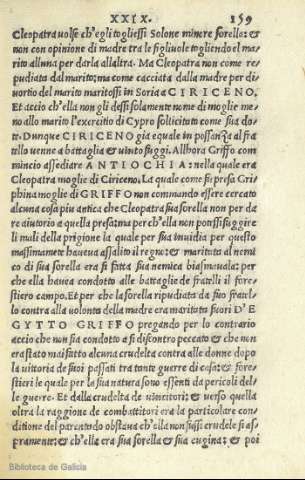 XXIX. 159
Cleopatra uolse ch'egli togliessi Solone minore sorella: &
non con opinione di madre tra le figliuole togliendo el ma
rito alluna per darla all altra. Ma Cleopatra non come re
pudiata dal marito: ma come cacciata dalla madre per di
uortio del marito maritossi in Soria a CIRICENO.
Et accio ch'ella non gli dessi solamente nome di moglie me
no allo marito l'exercitio di Cypro sollicitato come sua do
te. Dunque CIRICENO gia equale in possanza al fra
tello uenne a battaglia & uinto fuggi. Allhora Griffo com
mincio assediare ANTIOCHIA: nella quale era
Cleopatra moglie di Ciriceno. La quale come fu presa Gri
phina moglie di GRIFFO non commando essere cercato
alcuna cosa piu antica che Cleopatra sua sorella non per da
re aiutorio a quella presa: ma per ch'ella non potissi fuggire
li mali della prigione la quale per sua inuidia per questo
massimamente haueua assalito il regno: & maritata al nemi
co di sua sorella era si fatta sua nemica biasmauala: per
che ella hauea condotto alle battaglie de fratelli il fore-
stiero campo. Et per che la sorella ripudiata da suo fratel-
lo contra alla uolonta della madre era maritata fuori D'E
GYTTO GRIFFO pregando per lo contrario
accio che non sia condotto a si disconcto peccato & che non
era stato mai fatto alcuna crudelta contra alle donne dopo
la uittoria de suoi passati tra tante guerre di casa: & fore-
stieri le quale per la sua natura sono essenti da pericoli del-
le guerre. Et dalla crudelta de uincitori: & uerso quella
oltra la raggione de combattitori era la particolare con-
ditione del parentado obstaua ch'ella non fussi crudele si as-
pramente: & ch'ella era sua sorella & sua cugina: & poi
Biblioteca de Galicia